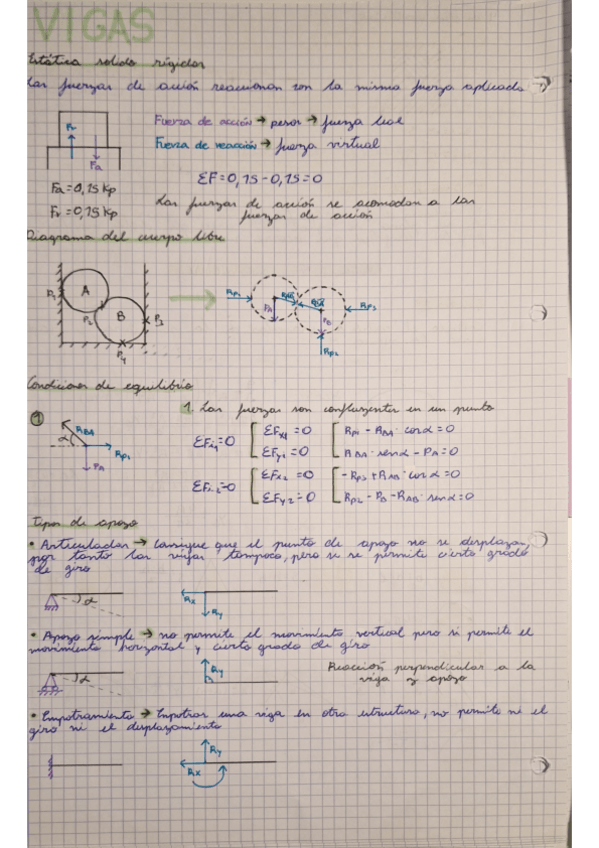 VIGAS
Estática solido rígidos
Las fuerzas de acción reaccionan con la misma fuerza aplicada
Fuerza de acción → pesos → fuerza real
Fr
Fuerza de reacción → fuerza virtual
Fa
ΣF=0,15-0,15=0
Fa=0,15 Kp
Fr=0,15 Kp
Las fuerzas de acción se acomodan a las
fuerzas de acción
Diagrama del cuerpo libre
P1 A P2 B P3 P4
Rp1 RAB RBA Rp3
PA PB
Rp2
Condiciones de equilibrio
1. Las fuerzas son confluyentes en un punto
1 RBA α Rp1 PA
ΣFi1=0 ΣFx1=0 Rp1 - RBA · cosα=0
ΣFy1=0 RBA · senα - PA=0
ΣFi2=0 ΣFx2=0 -Rp3+RAB · cosα=0
ΣFy2=0 Rp2 - PB - RAB · senα=0
Tipos de apoyo
• Articulados → Consigue que el punto de apoyo no se desplaza,
por tanto las vigas tampoco, pero si se permite cierto grado
de giro
α Rx Ry
• Apoyo simple → no permite el movimiento vertical pero si permite el
movimiento horizontal y cierto grado de giro
α Ry
Reacción perpendicular a la
viga y apoyo
• Empotramiento → Empotrar una viga en otra estructura, no permite ni el
giro ni el desplazamiento
Ry
Rx